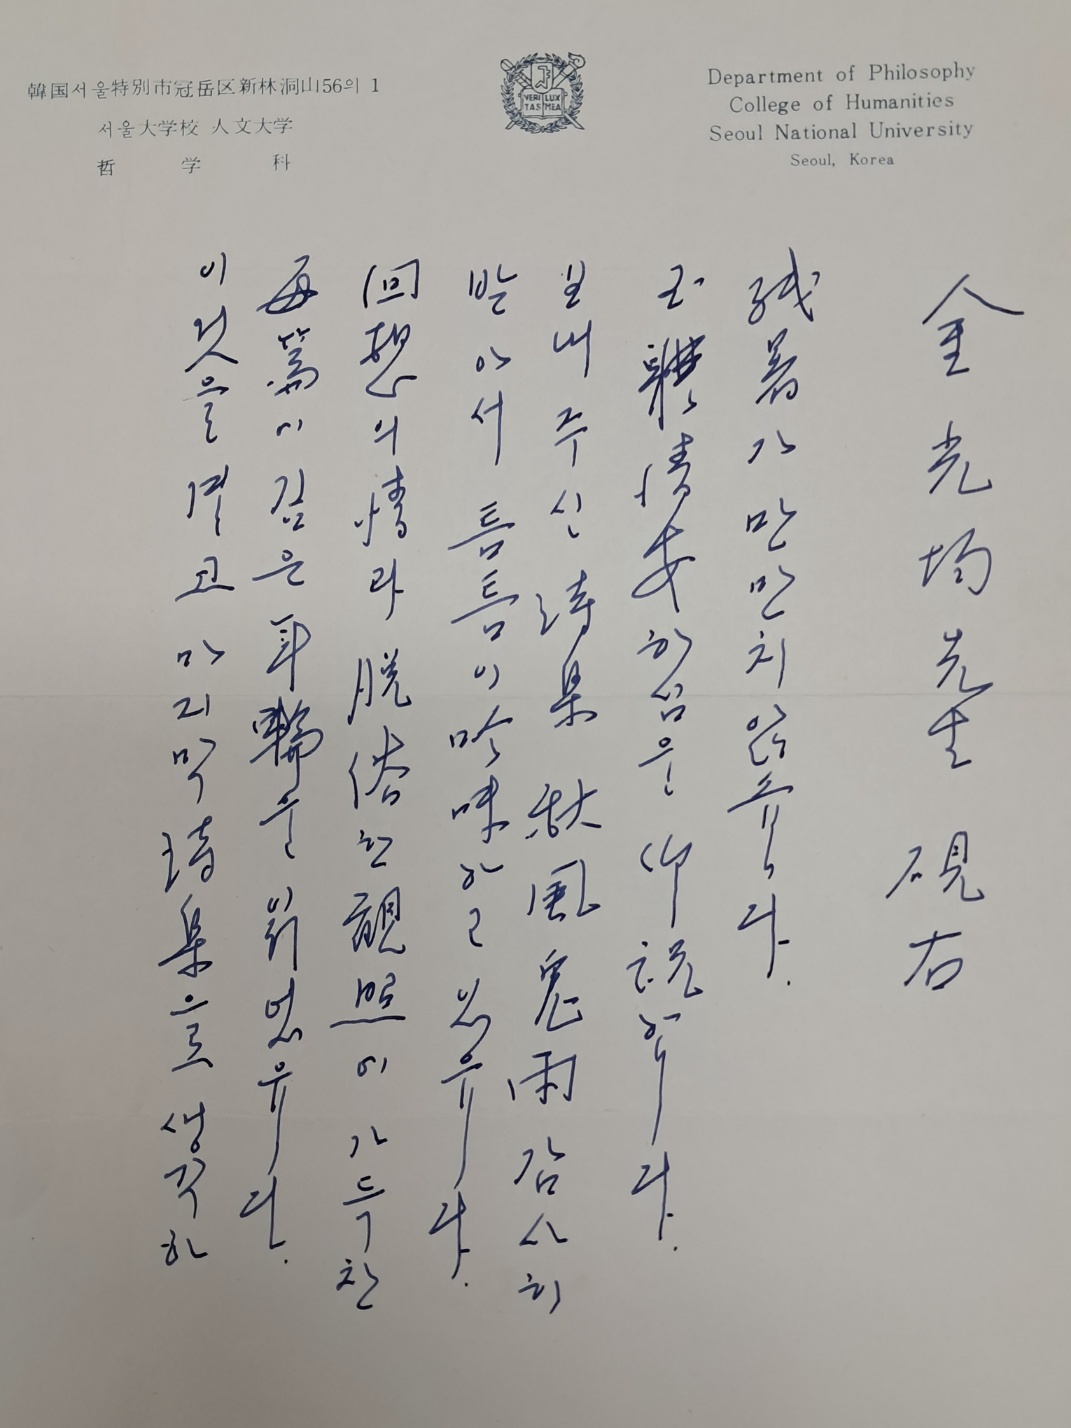 韓国서울特別市冠岳区新林洞山56의 1
서울大学校 人文大学
哲 学 科
VERI LUX
TAS MEA
Department of Philosophy
College of Humanities
Seoul National University
Seoul, Korea
金光均先生 硯右
残暑가 만만치 않습니다.
玉體 清安하심은 仰祝합니다.
보내주신 詩集 秋風鬼雨 감사히
받아서 틈틈이 吟味하고 있습니다.
回想의 情과 脱俗한 観照이 가득찬
每篇이 깊은 耳輪은 있습니다.
이것을 멸고 마지막 詩集으로 생각하